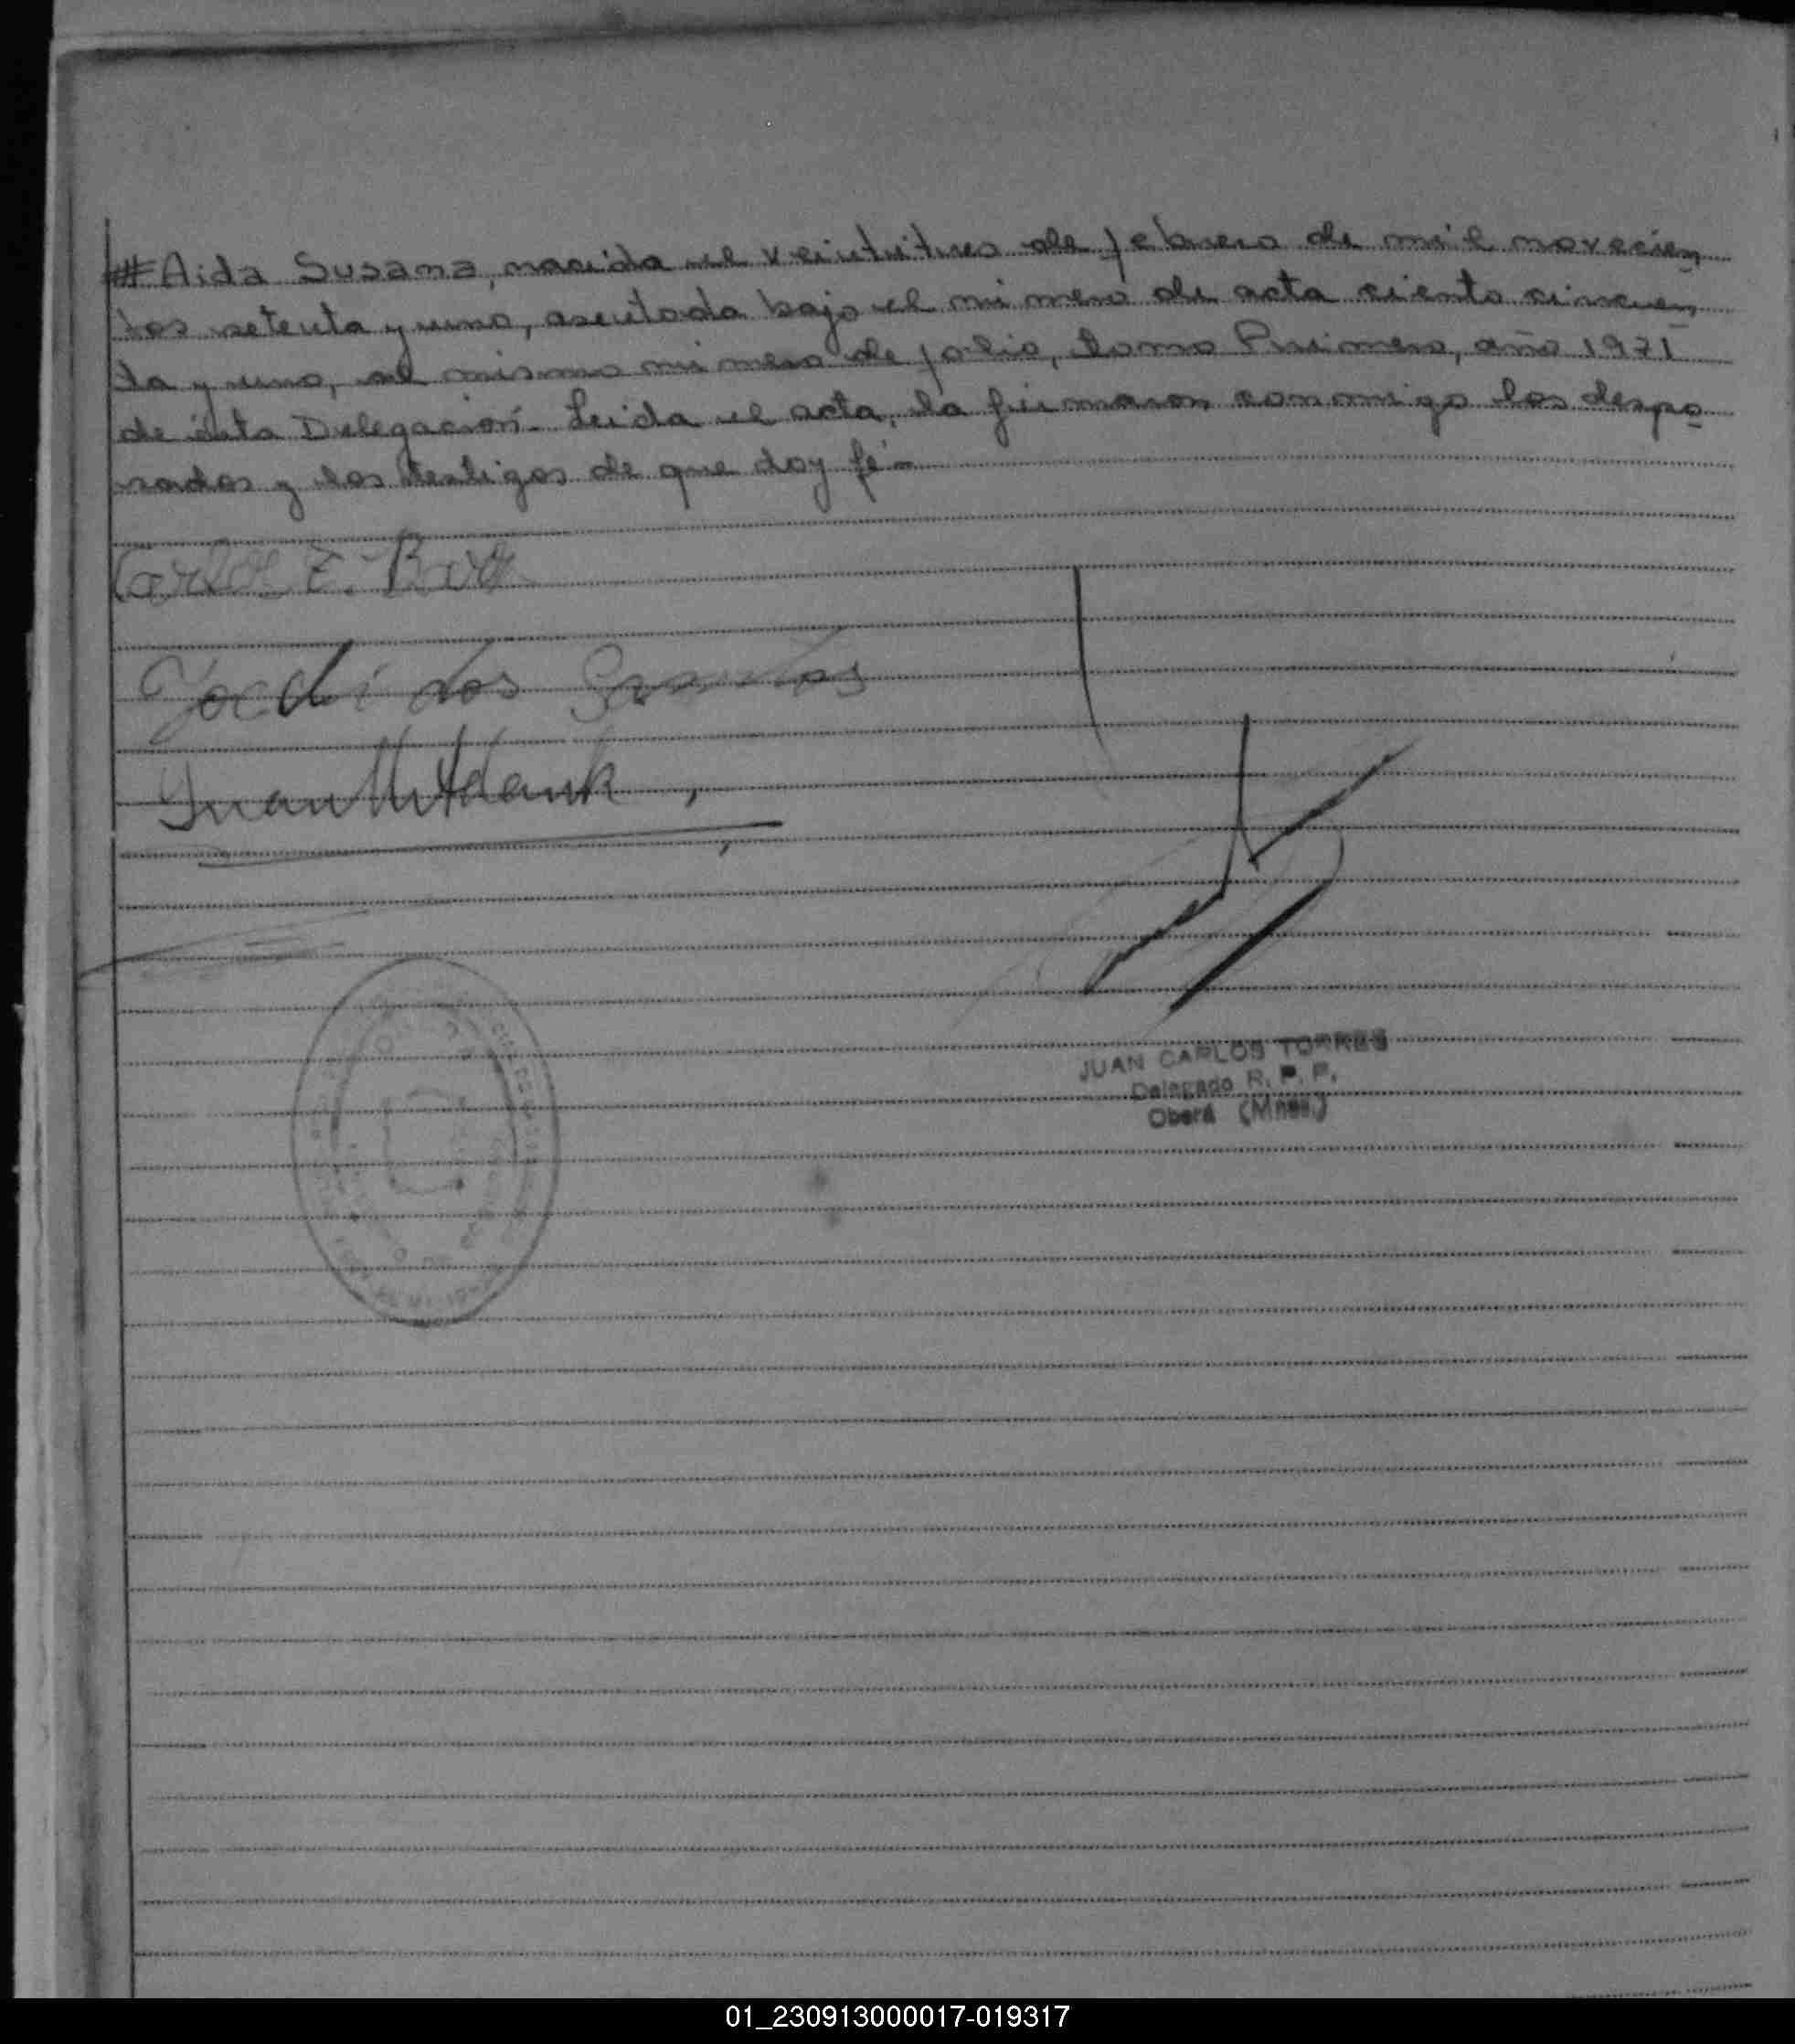 # Aida Susana, nacida el veintitres de febrero de mil novecien
tos setenta y uno, asentada bajo el número de acta ciento cincuen
ta y uno, al mismo número de folio, tomo Primero, año 1971
de ésta Delegación.- Leida el acta, la firmaron conmigo los despo
sados y los testigos de que doy fé.-
Carlos E.
dos Santos
Juan
JUAN CARLOS TORRES
Delegado R. P. P.
Oberá (Mnes.)
01_230913000017-019317